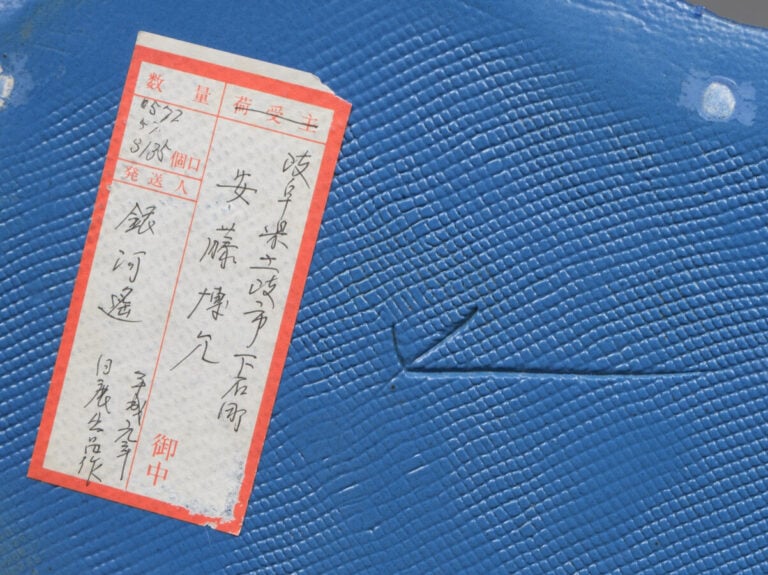 荷受主
岐阜県土岐市下石町
安藤博允
御中
数量
0572
57
3135
個口
発送人
銀河遙
平成元年
日展出品作